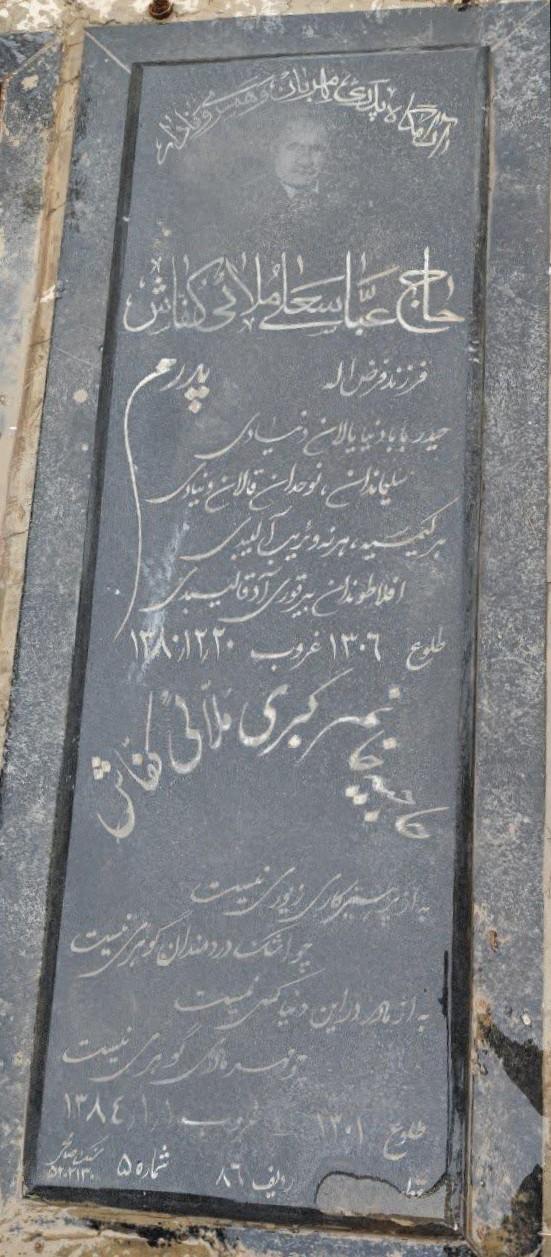 آرامگاه پدری مهربان و همسری وفادار
حاج عباسعلی ملائی کفاش
فرزند فرض اله پدرم
حیدر بابا دنیا یالان دنیادی
سلیماندان، نوحدان قالان دنیادی
هر کیمسیه، هر نه وئریب آلیبدی
افلاطوندان بیر قوری آد قالیبدی
طلوع ۱۳۰۶ غروب ۱۳۸۰،۱۲،۲۰
حاجیه خانم کبری ملائی کفاش
به از پرهیزکاری زیوری نیست
چو اشک دردمندان گوهری نیست
به از مادر در این دنیا کسی نیست
چو مهر مادری گوهری نیست
طلوع ۱۳۰۱ غروب ۱۳۸٤،۱،۱
ردیف ۸٦ شماره ۵
۵۲۰۲۱۳۰